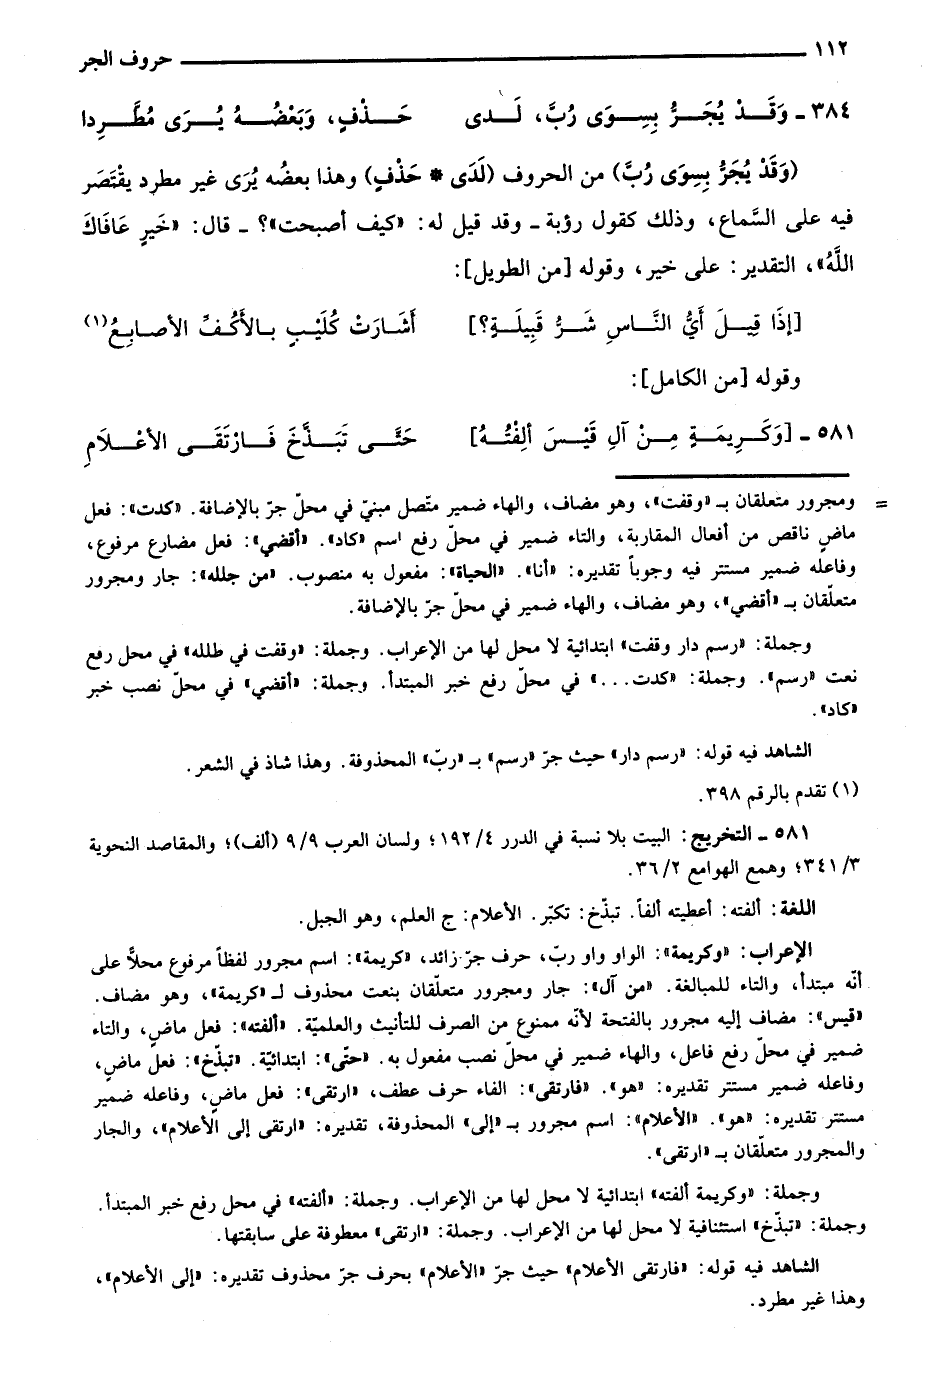 ١١٢ حروف الجر
٣٨٤ - وَقَدْ يُجَرُّ بِسِوَى رُبَّ، لَدى حَذْفٍ، وَبَعْضُهُ يُرَى مُطَّرِدا
(وَقَدْ يُجَرُّ بِسِوَى رُبَّ) من الحروف (لَدَى * حَذْفٍ) وهذا بعضُه يُرَى غير مطرد يقْتَصَر
فيه على السَّماع، وذلك كقول رؤبة - وقد قيل له: «كيف أصبحت»؟ - قال: «خَيرٍ عَافَاكَ
اللَّهُ»، التقدير: على خير، وقوله [من الطويل]:
[إذَا قِيلَ أَيُّ النَّاسِ شَرُّ قَبِيلَةٍ؟] أَشَارَتْ كُلَيْبٍ بالأَكُفِّ الأصابِعُ(١)
وقوله [من الكامل]:
٥٨١ - [وَكَرِيمَةٍ مِنْ آلِ قَيْسَ أَلِفْتُهُ] حَتَّى تَبَذَّخَ فَارْتَقَى الأعْلَامِ
= ومجرور متعلقان بـ «وقفت»، وهو مضاف، والهاء ضمير متّصل مبنيّ في محلّ جرّ بالإضافة. «كدت»: فعل
ماضٍ ناقص من أفعال المقاربة، والتاء ضمير في محلّ رفع اسم «كاد». «أقضي»: فعل مضارع مرفوع،
وفاعله ضمير مستتر فيه وجوباً تقديره: «أنا». «الحياة»: مفعول به منصوب. «من جلله»: جار ومجرور
متعلّقان بـ «أقضي»، وهو مضاف، والهاء ضمير في محلّ جرّ بالإضافة.
وجملة: «رسم دار وقفت» ابتدائية لا محل لها من الإعراب. وجملة: «وقفت في طلله» في محل رفع
نعت «رسم». وجملة: «كدت...» في محلّ رفع خبر المبتدأ. وجملة: «أقضي» في محلّ نصب خبر
«كاد».
الشاهد فيه قوله: «رسم دار» حيث جرّ «رسم» بـ «ربّ» المحذوفة. وهذا شاذ في الشعر.
(١) تقدم بالرقم ٣٩٨.
٥٨١ - التخريج: البيت بلا نسبة في الدرر ٤/ ١٩٢؛ ولسان العرب ٩/ ٩ (ألف)؛ والمقاصد النحوية
٣/ ٣٤١؛ وهمع الهوامع ٢/ ٣٦.
اللغة: ألفته: أعطيته ألفاً. تبذّخ: تكبّر. الأعلام: ج العلم، وهو الجبل.
الإعراب: «وكريمة»: الواو واو ربّ، حرف جرّ زائد، «كريمة»: اسم مجرور لفظاً مرفوع محلاًّ على
أنّه مبتدأ، والتاء للمبالغة. «من آل»: جار ومجرور متعلّقان بنعت محذوف لـ «كريمة»، وهو مضاف.
«قيس»: مضاف إليه مجرور بالفتحة لأنّه ممنوع من الصرف للتأنيث والعلميّة. «ألفته»: فعل ماضٍ، والتاء
ضمير في محلّ رفع فاعل، والهاء ضمير في محلّ نصب مفعول به. «حتّى»: ابتدائيّة. «تبذّخ»: فعل ماضٍ،
وفاعله ضمير مستتر تقديره: «هو». «فارتقى»: الفاء حرف عطف، «ارتقى»: فعل ماضٍ، وفاعله ضمير
مستتر تقديره: «هو». «الأعلام»: اسم مجرور بـ «إلى» المحذوفة، تقديره: «ارتقى إلى الأعلام»، والجار
والمجرور متعلّقان بـ «ارتقى».
وجملة: «وكريمة ألفته» ابتدائية لا محل لها من الإعراب. وجملة: «ألفته» في محل رفع خبر المبتدأ.
وجملة: «تبذّخ» استئنافية لا محل لها من الإعراب. وجملة: «ارتقى» معطوفة على سابقتها.
الشاهد فيه قوله: «فارتقى الأعلام» حيث جرّ «الأعلام» بحرف جرّ محذوف تقديره: «إلى الأعلام»،
وهذا غير مطرد.